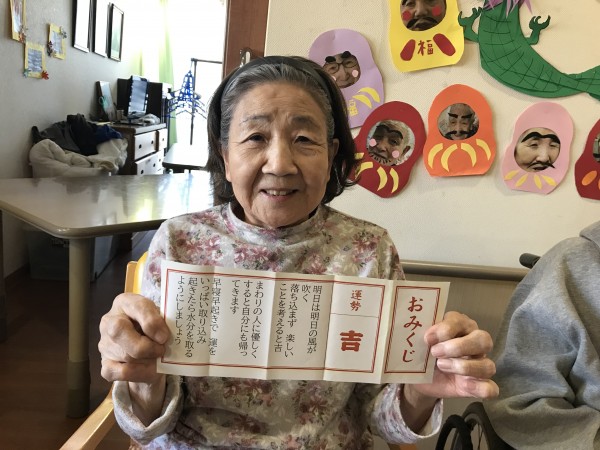 おみくじ
運勢
吉
明日は明日の風が
吹く
落ち込まず 楽しい
ことを考えると吉
まわりの人に優しく
すると自分にも帰っ
てきます
早寝早起きで 運を
いっぱい取り込み
起きたら水分を取る
ようにしましょう
福